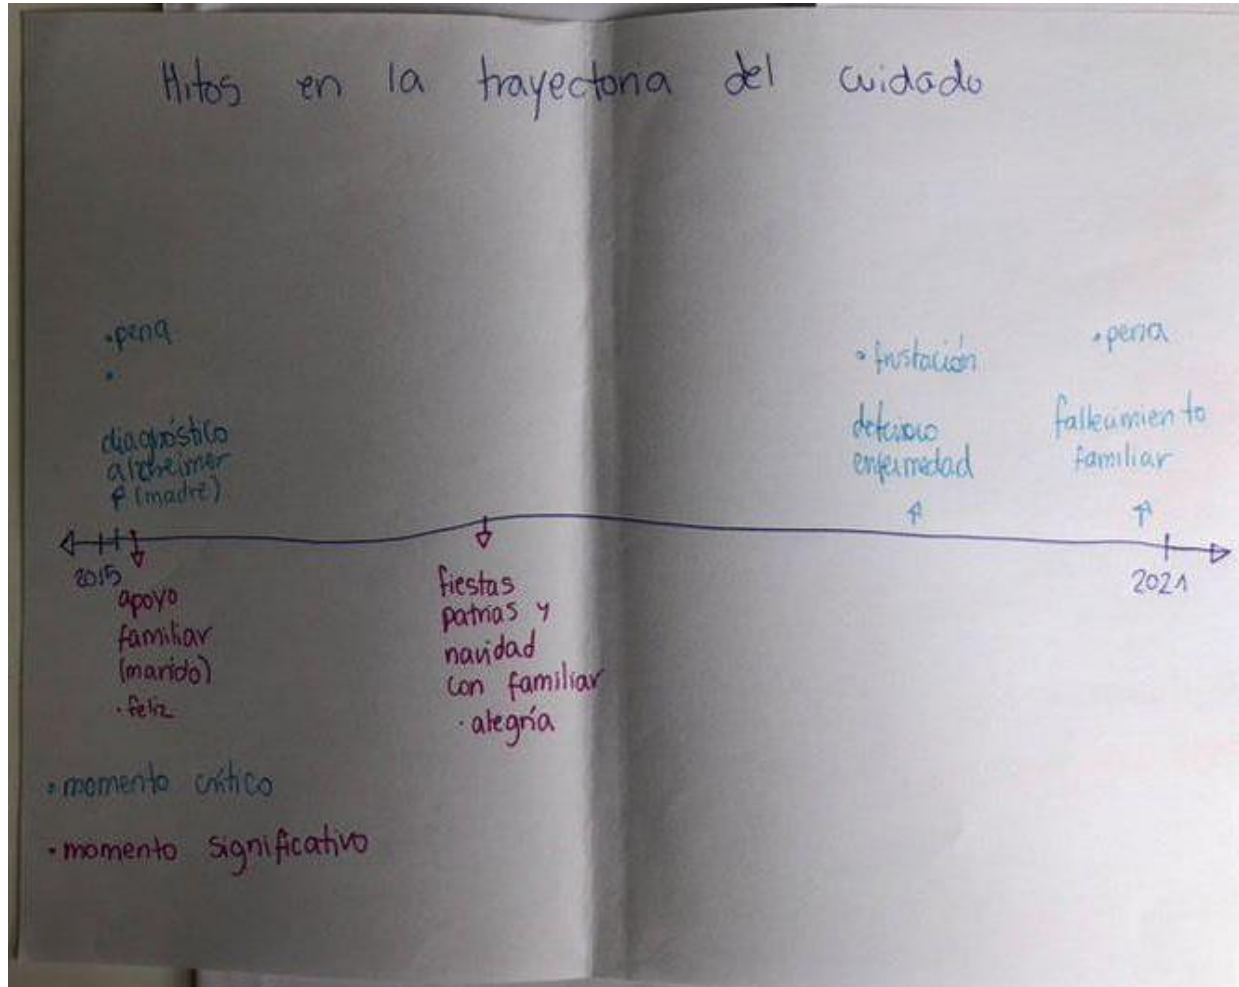 Hitos en la trayectoria del cuidado
•pena
•
diagnóstico
alzheimer
(madre)
• frustación
deterioro
enfermedad
•pena
falleamiento
familiar
2015
2021
apoyo
familiar
(marido)
•feliz
fiestas
patrias y
navidad
con familiar
•alegría
•momento crítico
•momento significativo